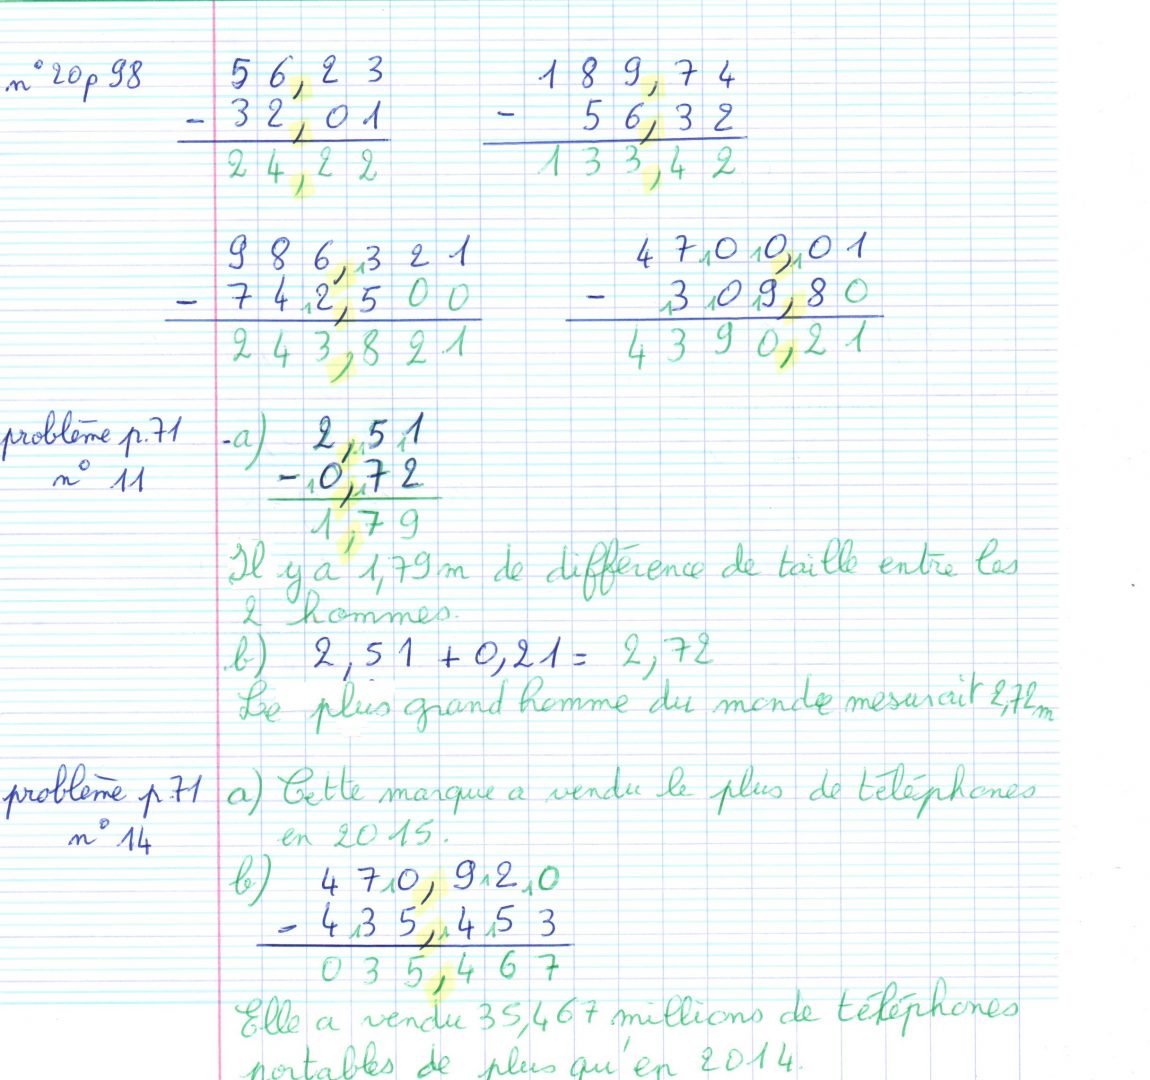 n° 20p 98
56,23
- 32,01
24,22
189,74
- 56,32
133,42
986,321
- 742,500
243,821
4700,01
- 309,80
4390,21
problème p.71
n° 11
a)
2,51
- 0,72
1,79
Il y a 1,79m de différence de taille entre les
2 hommes.
b) 2,51 + 0,21 = 2,72
Le plus grand homme du monde mesurait 2,72m
problème p.71
n° 14
a) Cette marque a vendu le plus de téléphones
en 2015.
b)
470,920
- 435,453
035,467
Elle a vendu 35,467 millions de téléphones
portables de plus qu'en 2014.